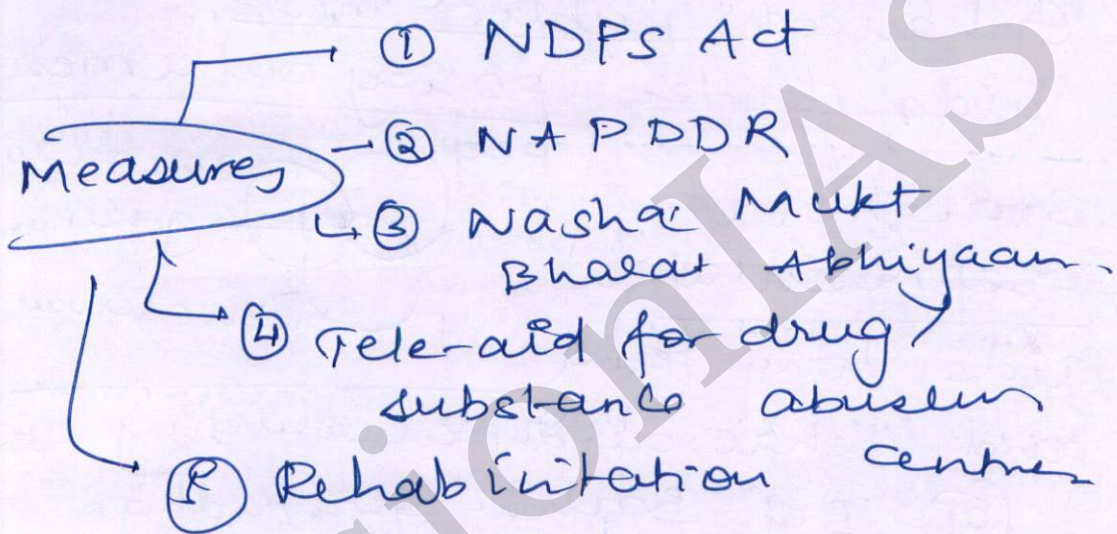 Measures
① NDPS Act
② NAPDDR
③ Nasha Mukt
Bharat Abhiyaan
④ Tele-aid for drug/
substance abusers
⑤ Rehabilitation centres
ionIAS